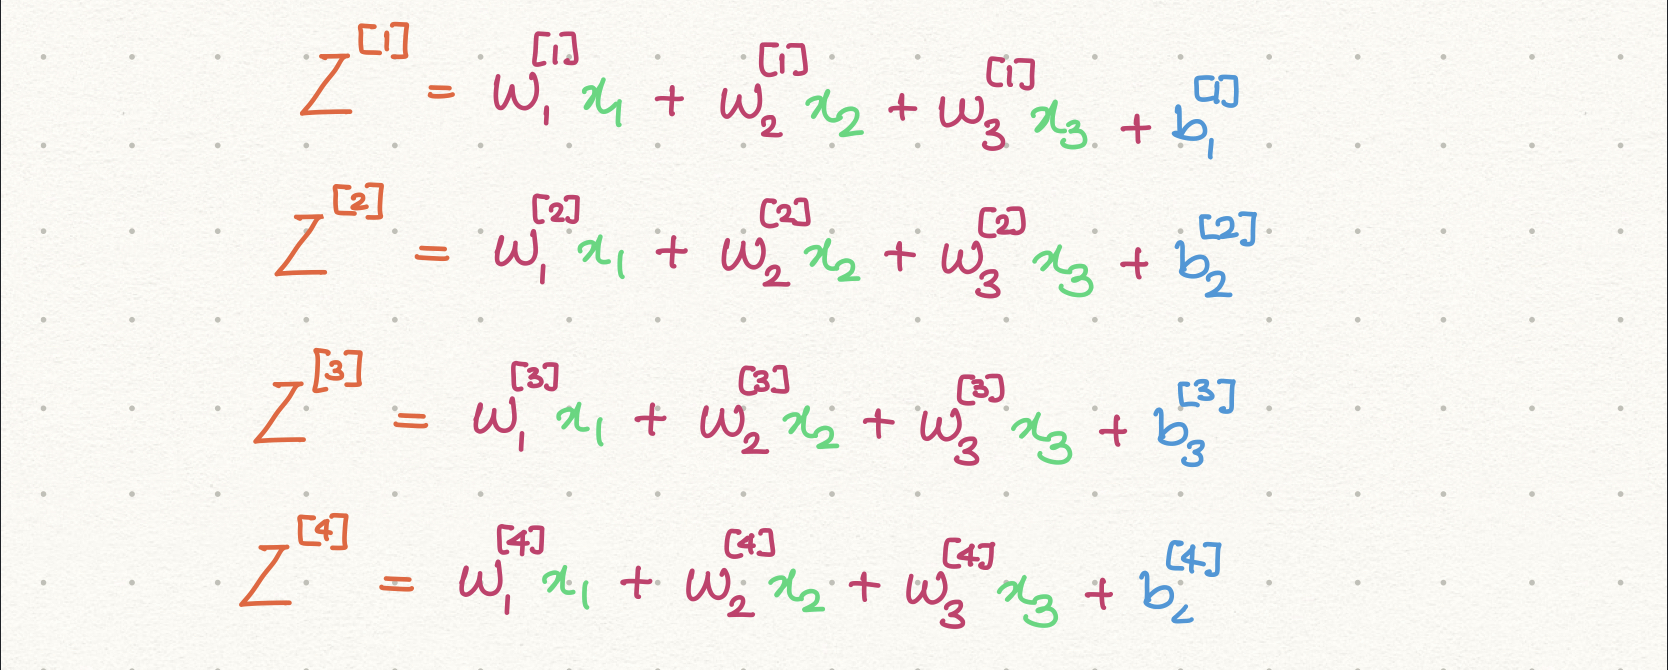 Z^[1] = w_1^[1] x_1 + w_2^[1] x_2 + w_3^[1] x_3 + b_1^[1]
Z^[2] = w_1^[2] x_1 + w_2^[2] x_2 + w_3^[2] x_3 + b_2^[2]
Z^[3] = w_1^[3] x_1 + w_2^[3] x_2 + w_3^[3] x_3 + b_3^[3]
Z^[4] = w_1^[4] x_1 + w_2^[4] x_2 + w_3^[4] x_3 + b^[4]